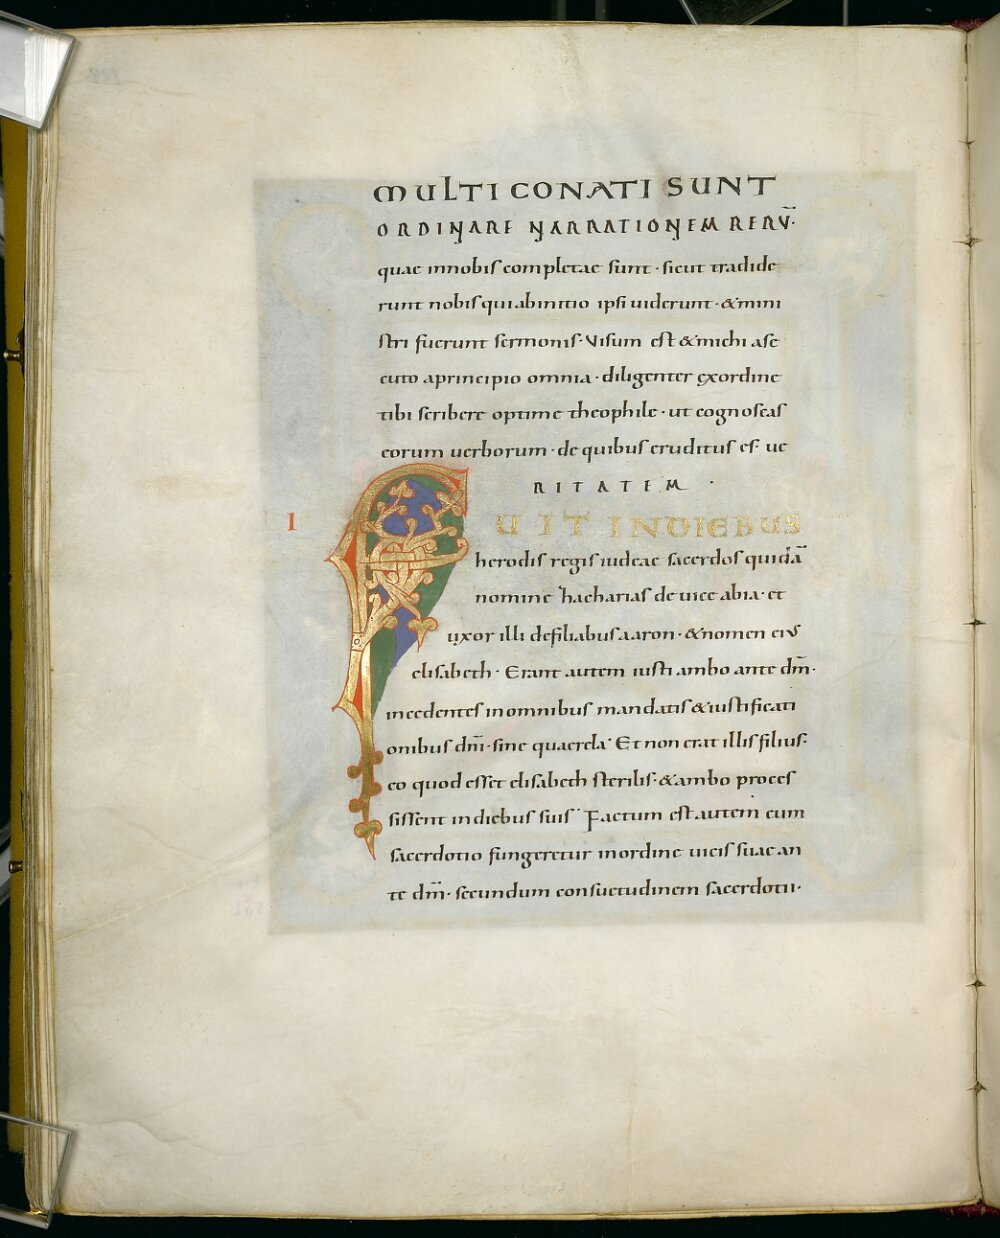 MULTI CONATI SUNT
ORDINARE NARRATIONEM RERŪ·
quae innobis completae sunt · sicut tradide
runt nobis quiabinitio ipsi uiderunt · & mini
stri fuerunt sermonis · Visum est & michi ase
cuto aprincipio omnia · diligenter exordine
tibi scribere optime theophile · ut cognoscas
eorum uerborum · de quibus eruditus es · ue
RITATEM ·
I FUIT INDIEBUS
herodis regis iudeae sacerdos quidā
nomine zacharias de uice abia · et
uxor illi defiliabus aaron · & nomen eius
elisabeth · Erant autem iusti ambo ante dm̄ ·
incedentes inomnibus mandatis & iustificati
onibus dm̄i · sine quaerela · Et non erat illis filius ·
eo quod esset elisabeth sterilis · & ambo proces
sissent indiebus suis · Factum est autem cum
sacerdotio fungeretur inordine uicis suae an
te dm̄ · secundum consuetudinem sacerdotii ·